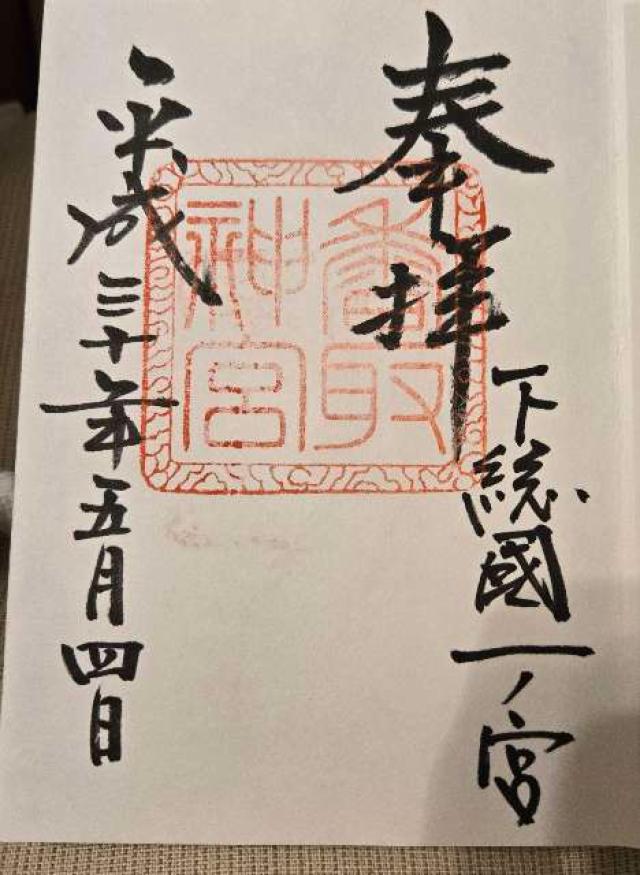 奉拝
下総國一ノ宮
香取神宮
平成三十年五月四日